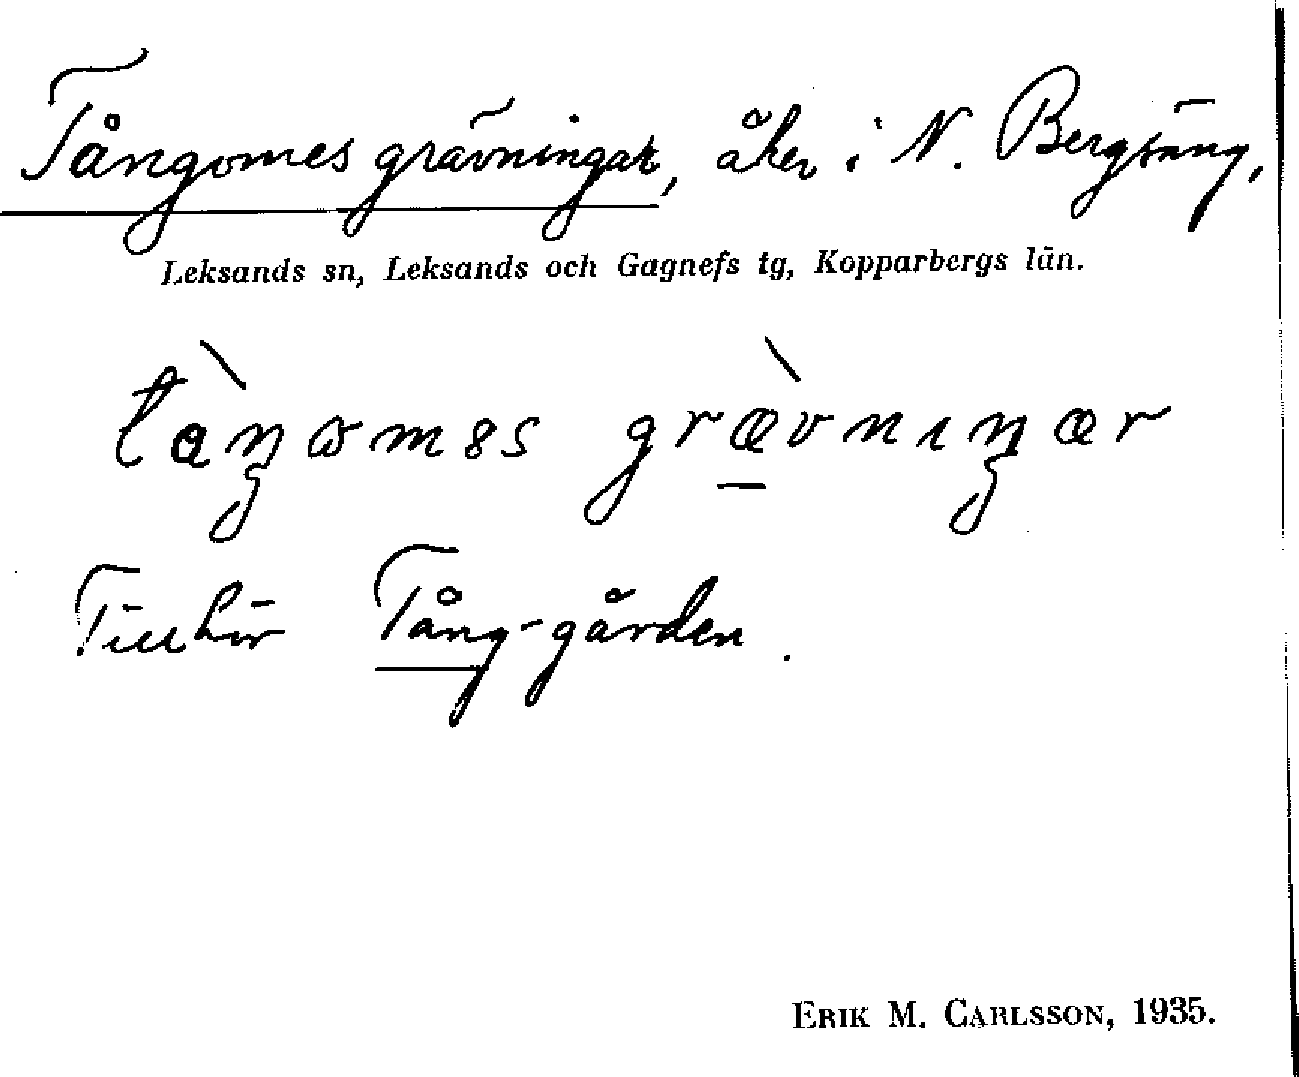 Tångomes grävningar, åker i N. Bergsäng,
Leksands sn, Leksands och Gagnefs tg, Kopparbergs län.
Tillhör Tång-gården.
ERIK M. CARLSSON, 1935.